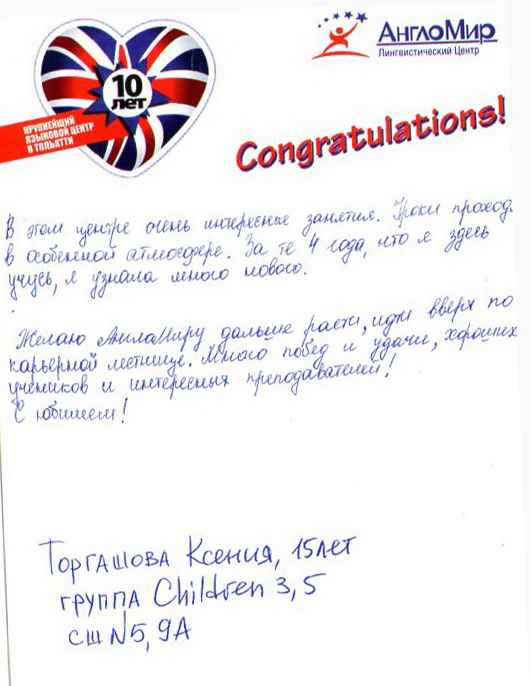 10
ЛЕТ
КРУПНЕЙШИЙ
ЯЗЫКОВОЙ ЦЕНТР
В ТОЛЬЯТТИ
АнглоМир
Лингвистический Центр
Congratulations!
В этом центре очень интересные занятия. Уроки проход.
в особенной атмосфере. За те 4 года, что я здесь
учусь, я узнала много нового.
Желаю АнглоМиру дальше расти, идти вверх по
карьерной лестнице. Много побед и удачи, хороших
учеников и интересных преподавателей!
С юбилеем!
Торгашова Ксения, 15 лет
группа Children 3,5
СШ N5, 9А